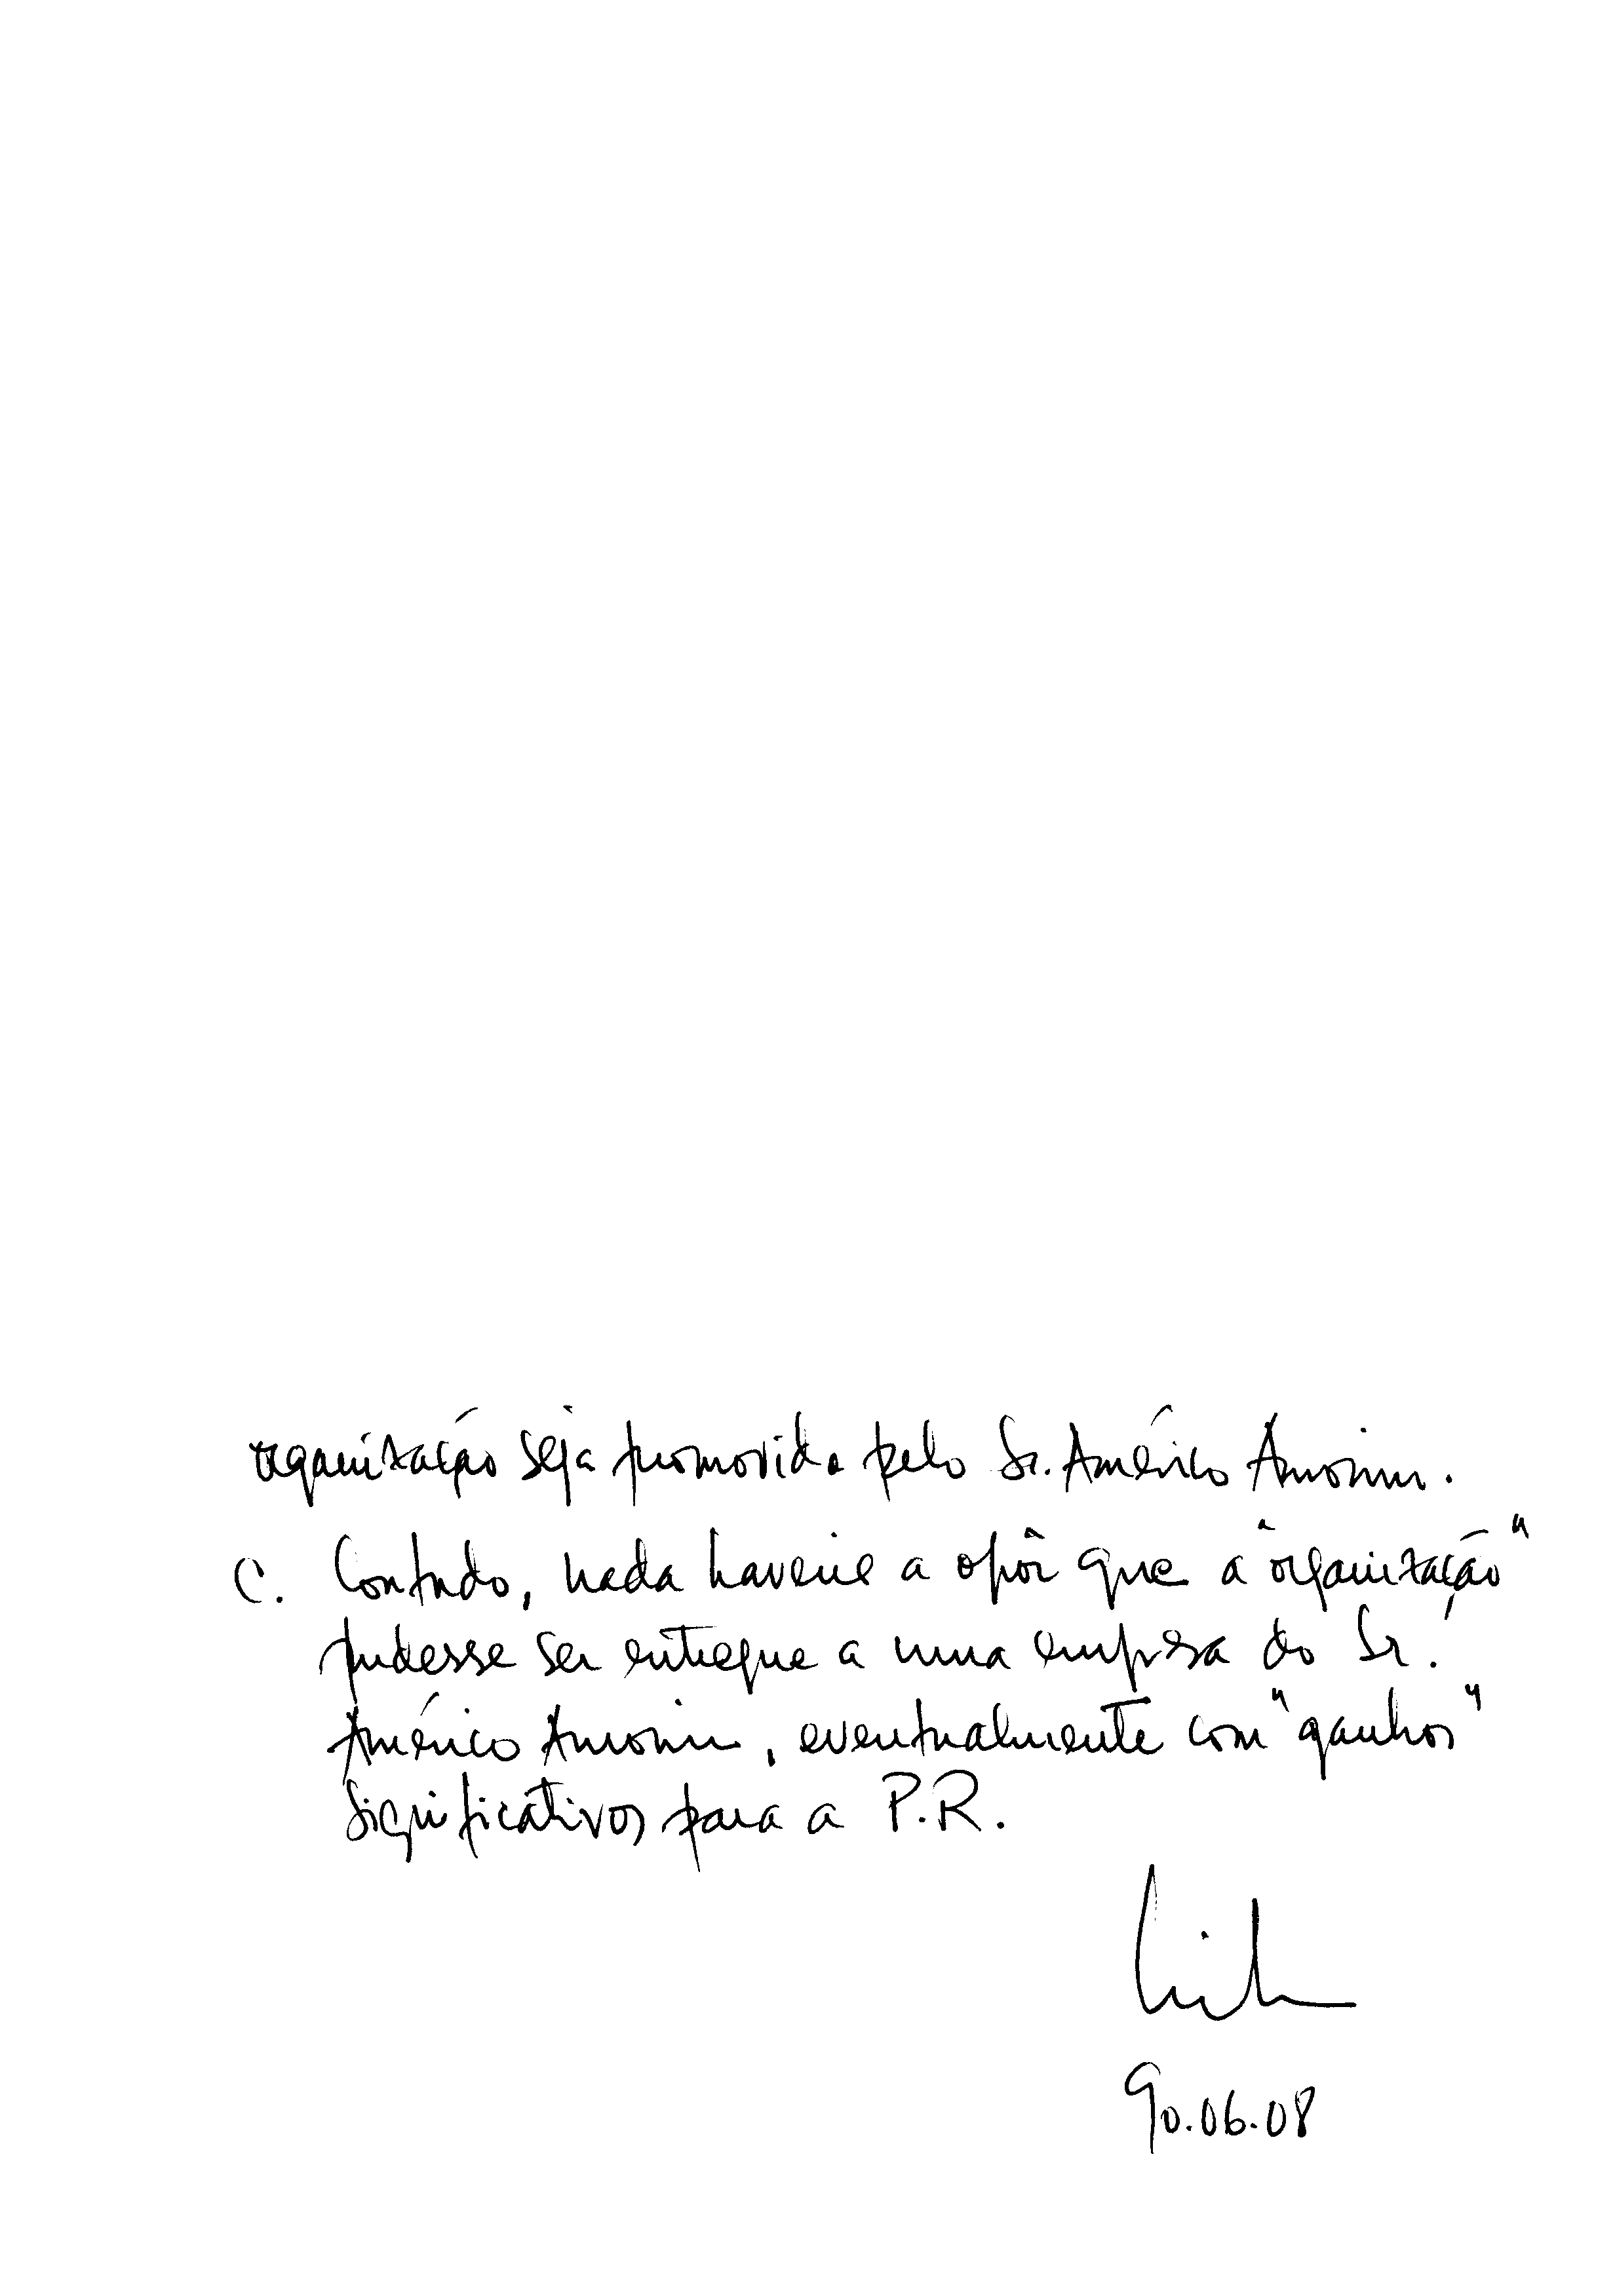 organização seja promovida pelo Sr. Américo Amorim.
C. Contudo, nada haveria a opôr que a "organização"
pudesse ser entregue a uma empresa do Sr.
Américo Amorim, eventualmente com "ganhos"
significativos para a P.R.
90.06.08